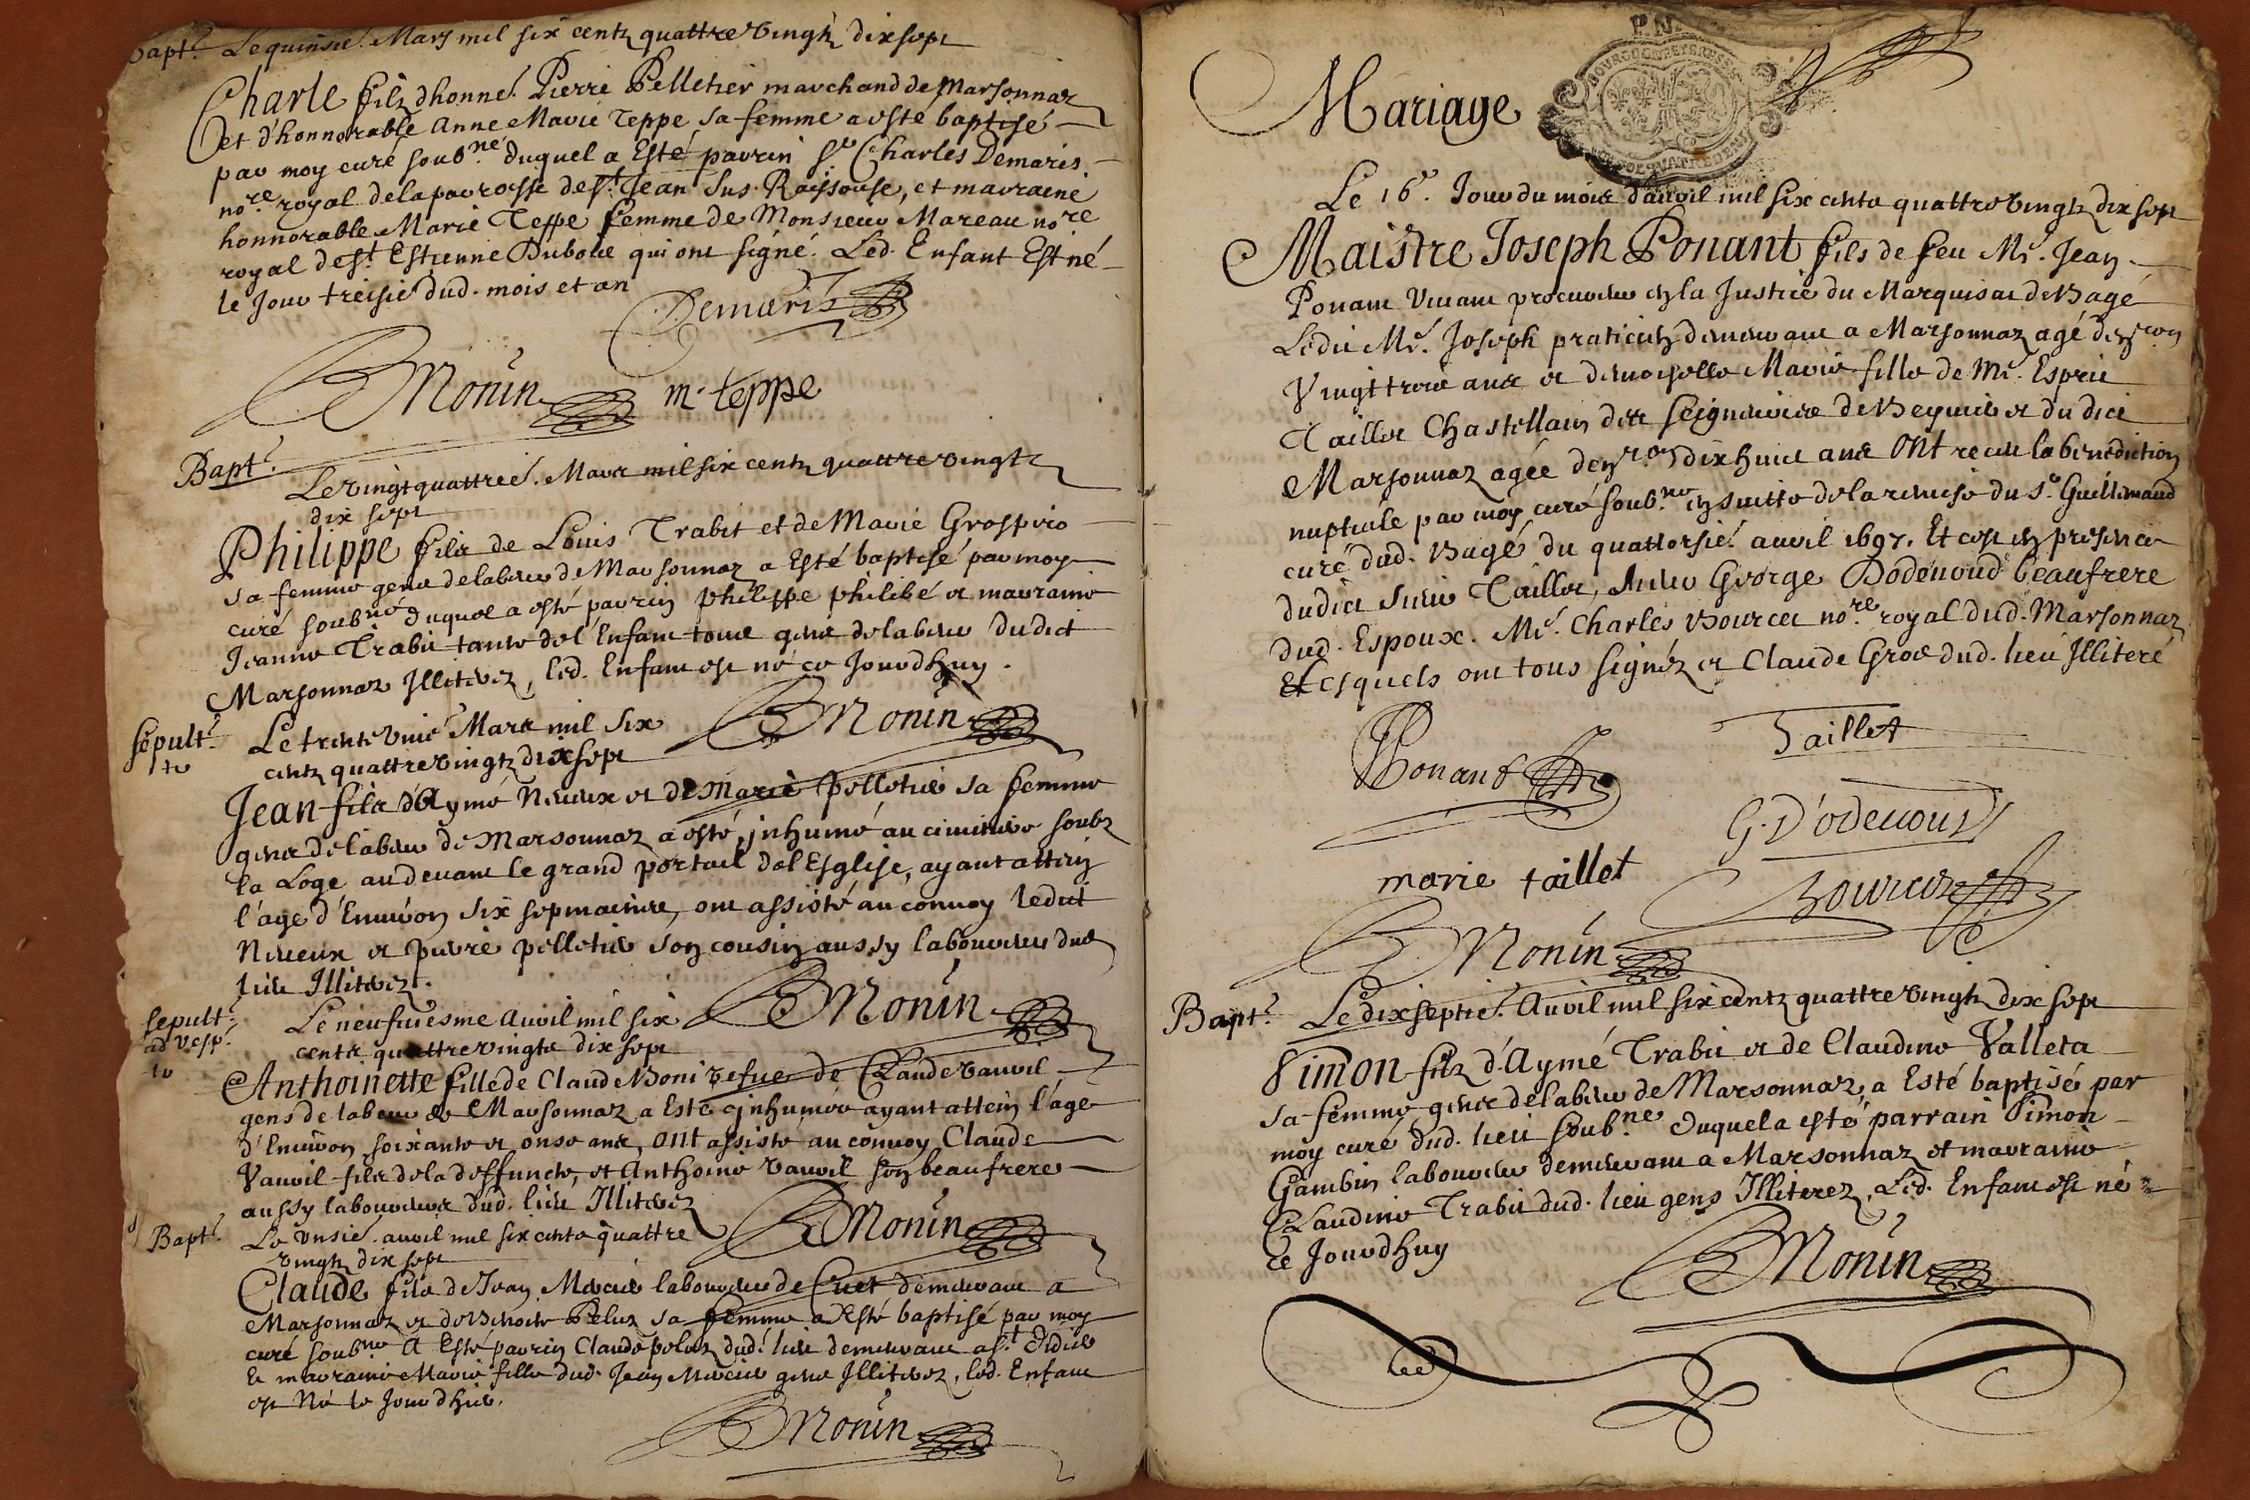 Bapt. Le quinsie. Mars mil six centz quattre vingtz dix sept
Charle filz d'honne. Pierre Pelletier marchand de Marsonnaz
et d'honnorable Anne Marie Teppe sa femme a esté baptisé
par moy curé soub.né duquel a Esté parrin s.r Charles Demaris
no.re royal de la parroisse de s.t Jean sus Raissouse, et marraine
honnorable Marie Teppe femme de Monsieur Mareau no.re
royal de s.t Estienne Dubois qui ont signé. Led. Enfant Est né
le Jour treisie dud. mois et an
Demaris
BMonin m. teppe
Bapt. Le vingt quattrie. Mars mil six centz quattre vingtz
dix sept
Philippe filz de Louis Trabit et de Marie Grospiro
sa femme gens de labeur de Marsonnaz a Esté baptisé par moy
curé soub.né duquel a esté parrin philippe philibé et marraine
Jeanne Trabit tante de l'Enfant tous gens de labeur dudict
Marsonnaz Illiterez, led. Enfant est né ce Jourdhuy.
BMonin
sepult. Le trente unie Mars mil six
centz quattre vingtz dix sept
Jean fils d'Aymé Niveux et de Marie Pelletier sa femme
gens de labeur de Marsonnaz a esté inhumé au cimitiere soubz
la Loge au devant le grand portail de l'Esglise, ayant attein
l'age d'Environ six sepmaines, ont assisté au convoy ledict
Niveux et pierre pelletier son cousin aussy laboureur dud.
lieu Illiterez.
BMonin
sepult. Le neufviesme Avril mil six
ad vesp. cents quattre vingts dix sept
Anthoinette fille de Claude Boni vefue de Claude vauvil
gens de labeur de Marsonnaz a Esté inhumée ayant attein l'age
d'Environ soixante et onse ans, ont assisté au convoy Claude
Vauvil fils de la deffuncte, et Anthoine vauvil son beaufrere
aussy laboureurs dud. lieu Illiterez
BMonin
Bapt. Le unsie. avril mil six cents quattre
vingtz dix sept
Claude fils de Jean Mercier laboureur de Cuet demeurant a
Marsonnaz et de Benoite Peluz sa femme a Esté baptisé par moy
curé soub.né A Esté parrin Claude peluz dud. lieu demeurant a s.t Didier
Et marraine Marie fille dud. Jean Mercier gens Illiterez, led. Enfant
est Né le Jourdhui.
BMonin
Mariage
BOURGOGNE
Le 16.e Jour du mois d'avril mil six cents quattre vingtz dix sept
Maistre Joseph Ponant fils de feu M.e Jean
Ponant vivant procureur en la Justice du Marquisat de Bagé
Ledit M.e Joseph praticien demeurant a Marsonnaz agé d'environ
Vingt trois ans et demoiselle Marie fille de M.e Esprit
Taillet Chastellain des seigneuries de Beyvier et dudict
Marsonnaz agée d'environ dix huict ans Ont receu la benediction
nuptiale par moy curé soub.né ensuitte de la remise du s.r Guillimaud
curé dud. Bagé du quattorsie. avril 1697. Et c'est en presence
dudict sieur Taillet, sieur George Dodenoud beaufrere
dud. Espoux. M.e Charles Bourcet no.re royal dud. Marsonnaz
Lesquels ont tous signéz et Claude Gros dud. lieu Illiteré
JPonant Taillet
G. D'odenoud
marie taillet
Bourcet
BMonin
Bapt. Le dix septie. Avril mil six centz quattre vingtz dix sept
Simon filz d'Aymé Trabit et de Claudine Valleta
sa femme gens de labeur de Marsonnaz, a Esté baptisé par
moy curé dud. lieu soub.né duquel a esté parrain Simon
Gambin laboureur demeurant a Marsonnaz et marraine
Claudine Trabit dud. lieu gens Illiterez, Led. Enfant est né
ce Jourdhuy
BMonin